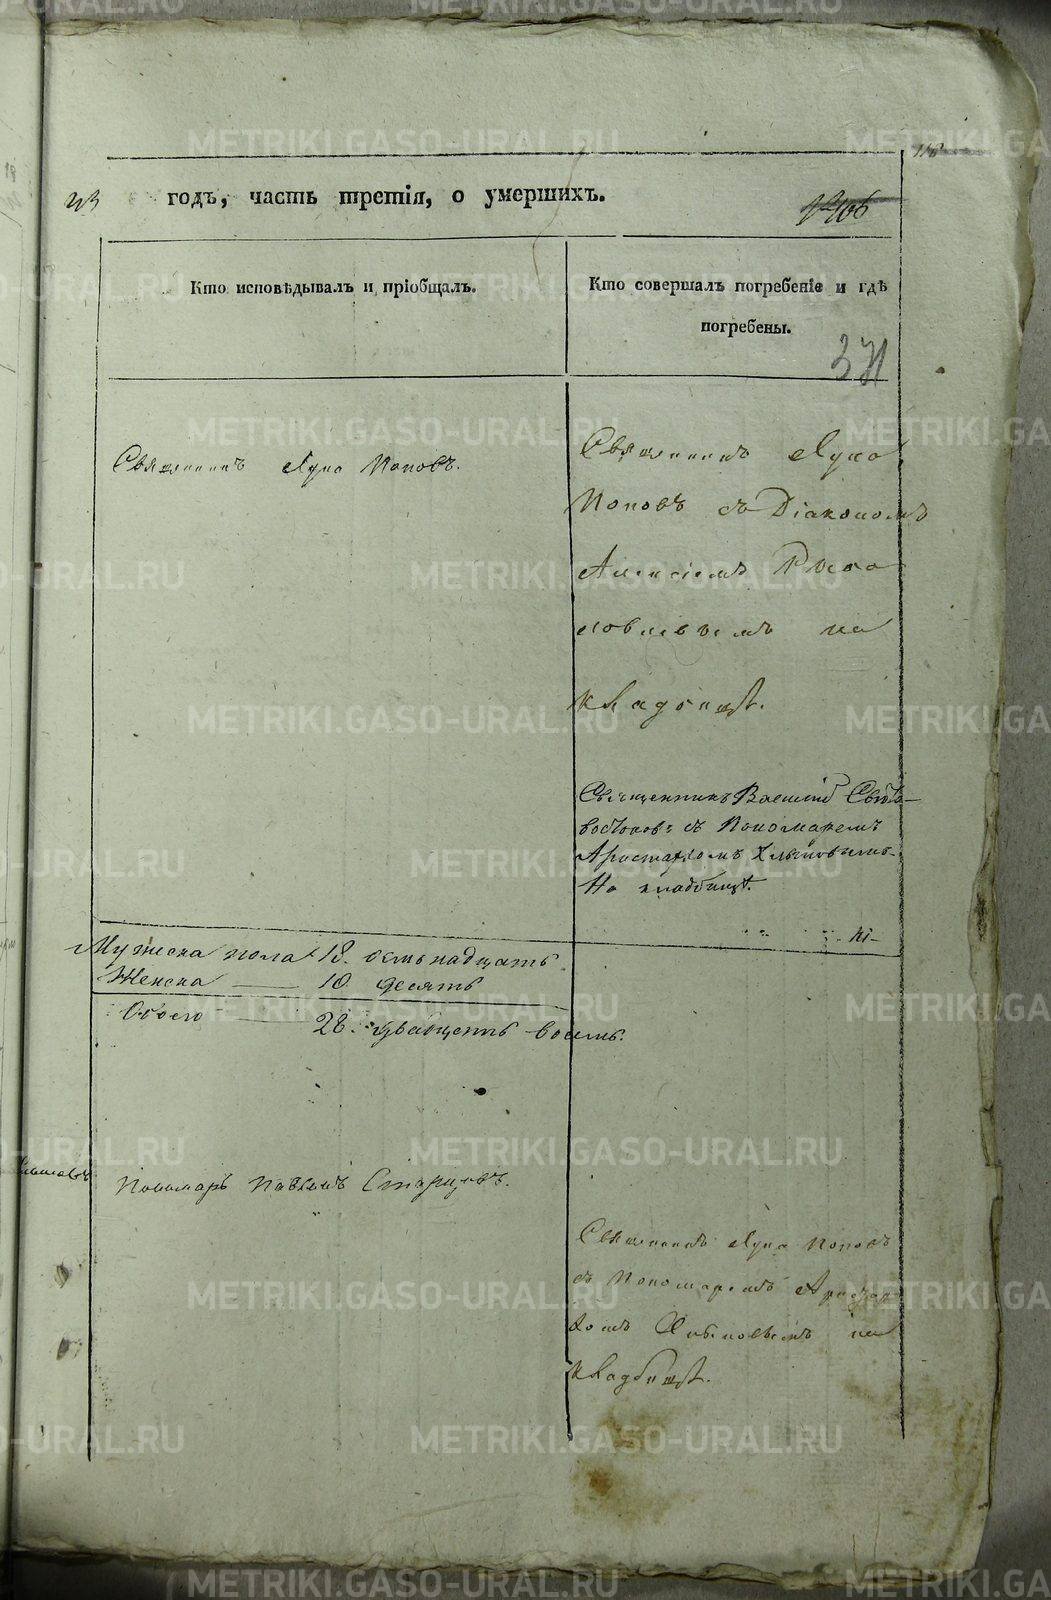 118
43 годъ, часть третія, о умершихъ.
№ 106
Кто исповѣдывалъ и пріобщалъ.
Кто совершалъ погребеніе и гдѣ
погребены.
371
Священникъ Лука Поповъ.
Священникъ Лука
Поповъ съ Діакономъ
Алексіемъ
на
кладбищѣ.
Священникъ Василій
съ Пономаремъ
Аристархомъ Хлыновымъ
На кладбищѣ.
Мужеска пола 18. осмьнадцать
Женска — 10 десять
Обоего 28. двадцать восемь.
Пономарь Павелъ Старцовъ.
Священникъ Лука Поповъ
съ Пономаремъ Аристар
хомъ Хлыновымъ на
кладбищѣ.
METRIKI.GASO-URAL.RU